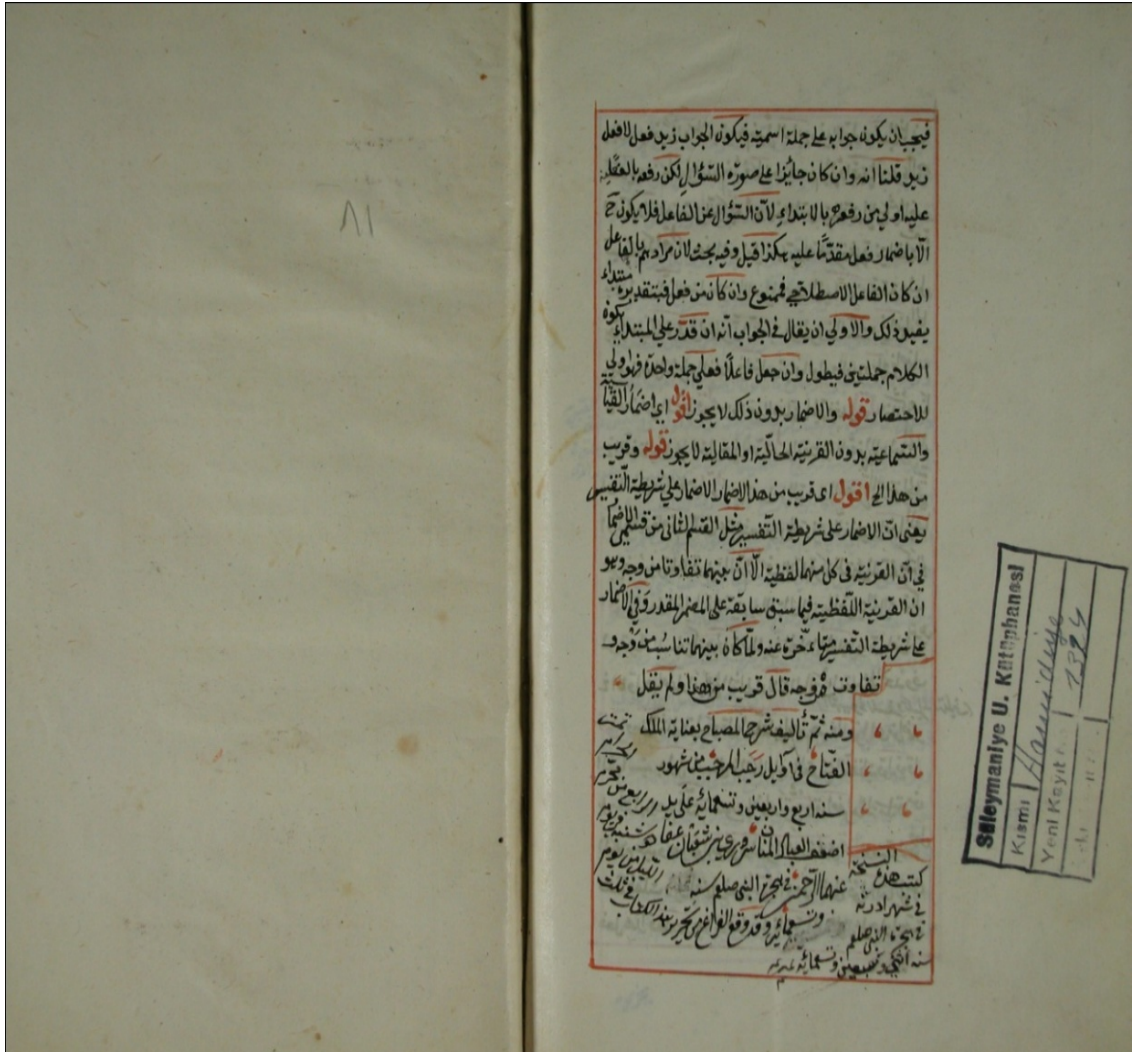 فيجب ان يكون جوابه على جملة اسمية فيكون الجواب زيد فعل لا فعل
زيد قلنا انه وان كان جائزا على صورة السؤال لكن رفعه بالفعلية
عليه اولى من رفعه بالابتداء لان السؤال عن الفاعل فلا يكون ح
الا باضمار فعل مقدما عليه هكذا قيل وفيه بحث لان مرادهم بالفاعل
ان كان الفاعل الاصطلاحي فممنوع وان كان من فعل فبتقديره مبتداء
يفيد ذلك والاولى ان يقال في الجواب انه ان قدر على المبتداء يكون
الكلام جملتين فيطول وان جعل فاعلا فعلى جملة واحدة فهو اولى
للاختصار قوله والاضمار بدون ذلك لا يجوز اقول اي اضمار القياسية
والسماعية بدون القرينة الحالية او المقالية لا يجوز قوله وقريب
من هذا الخ اقول اى قريب من هذا الاضمار الاضمار على شريطة التفسير
يعنى ان الاضمار على شريطة التفسير مثل القسم الثانى من قسمى الاضمار
في ان القرينة فى كل منهما لفظية الا ان بينهما تفاوتا من وجه وهو
ان القرينة اللفظية فيما سبق سابقة على المضمر المقدر وفي الاضمار
على شريطة التفسير متاءخرة عنه ولما كان بينهما تناسب من وجه و
تفاوت من وجه قال قريب من هذا ولم يقل
ومنه تم تأليف شرح المصباح بعناية الملك
الفتاح فى اوايل رجب المرجب من شهور
سنه اربع واربعين وتسعمائة على يد
اضعف العباد سرورى بن شعبان عفا
عنهما الرحمن في هجرة النبى صلعم سنه
وتسعمائة وقد وقع الفراغ من تحرير هذا الكتاب فى ثلث
الليل من يوم
كتبت هذه النسخة
في شهر ادرنه
في هجرة النبى صلعم
وتسعمائة
٨١
Süleymaniye U. Kütüphanesi
Kısmı Hamidiye
Yeni Kayıt 1324